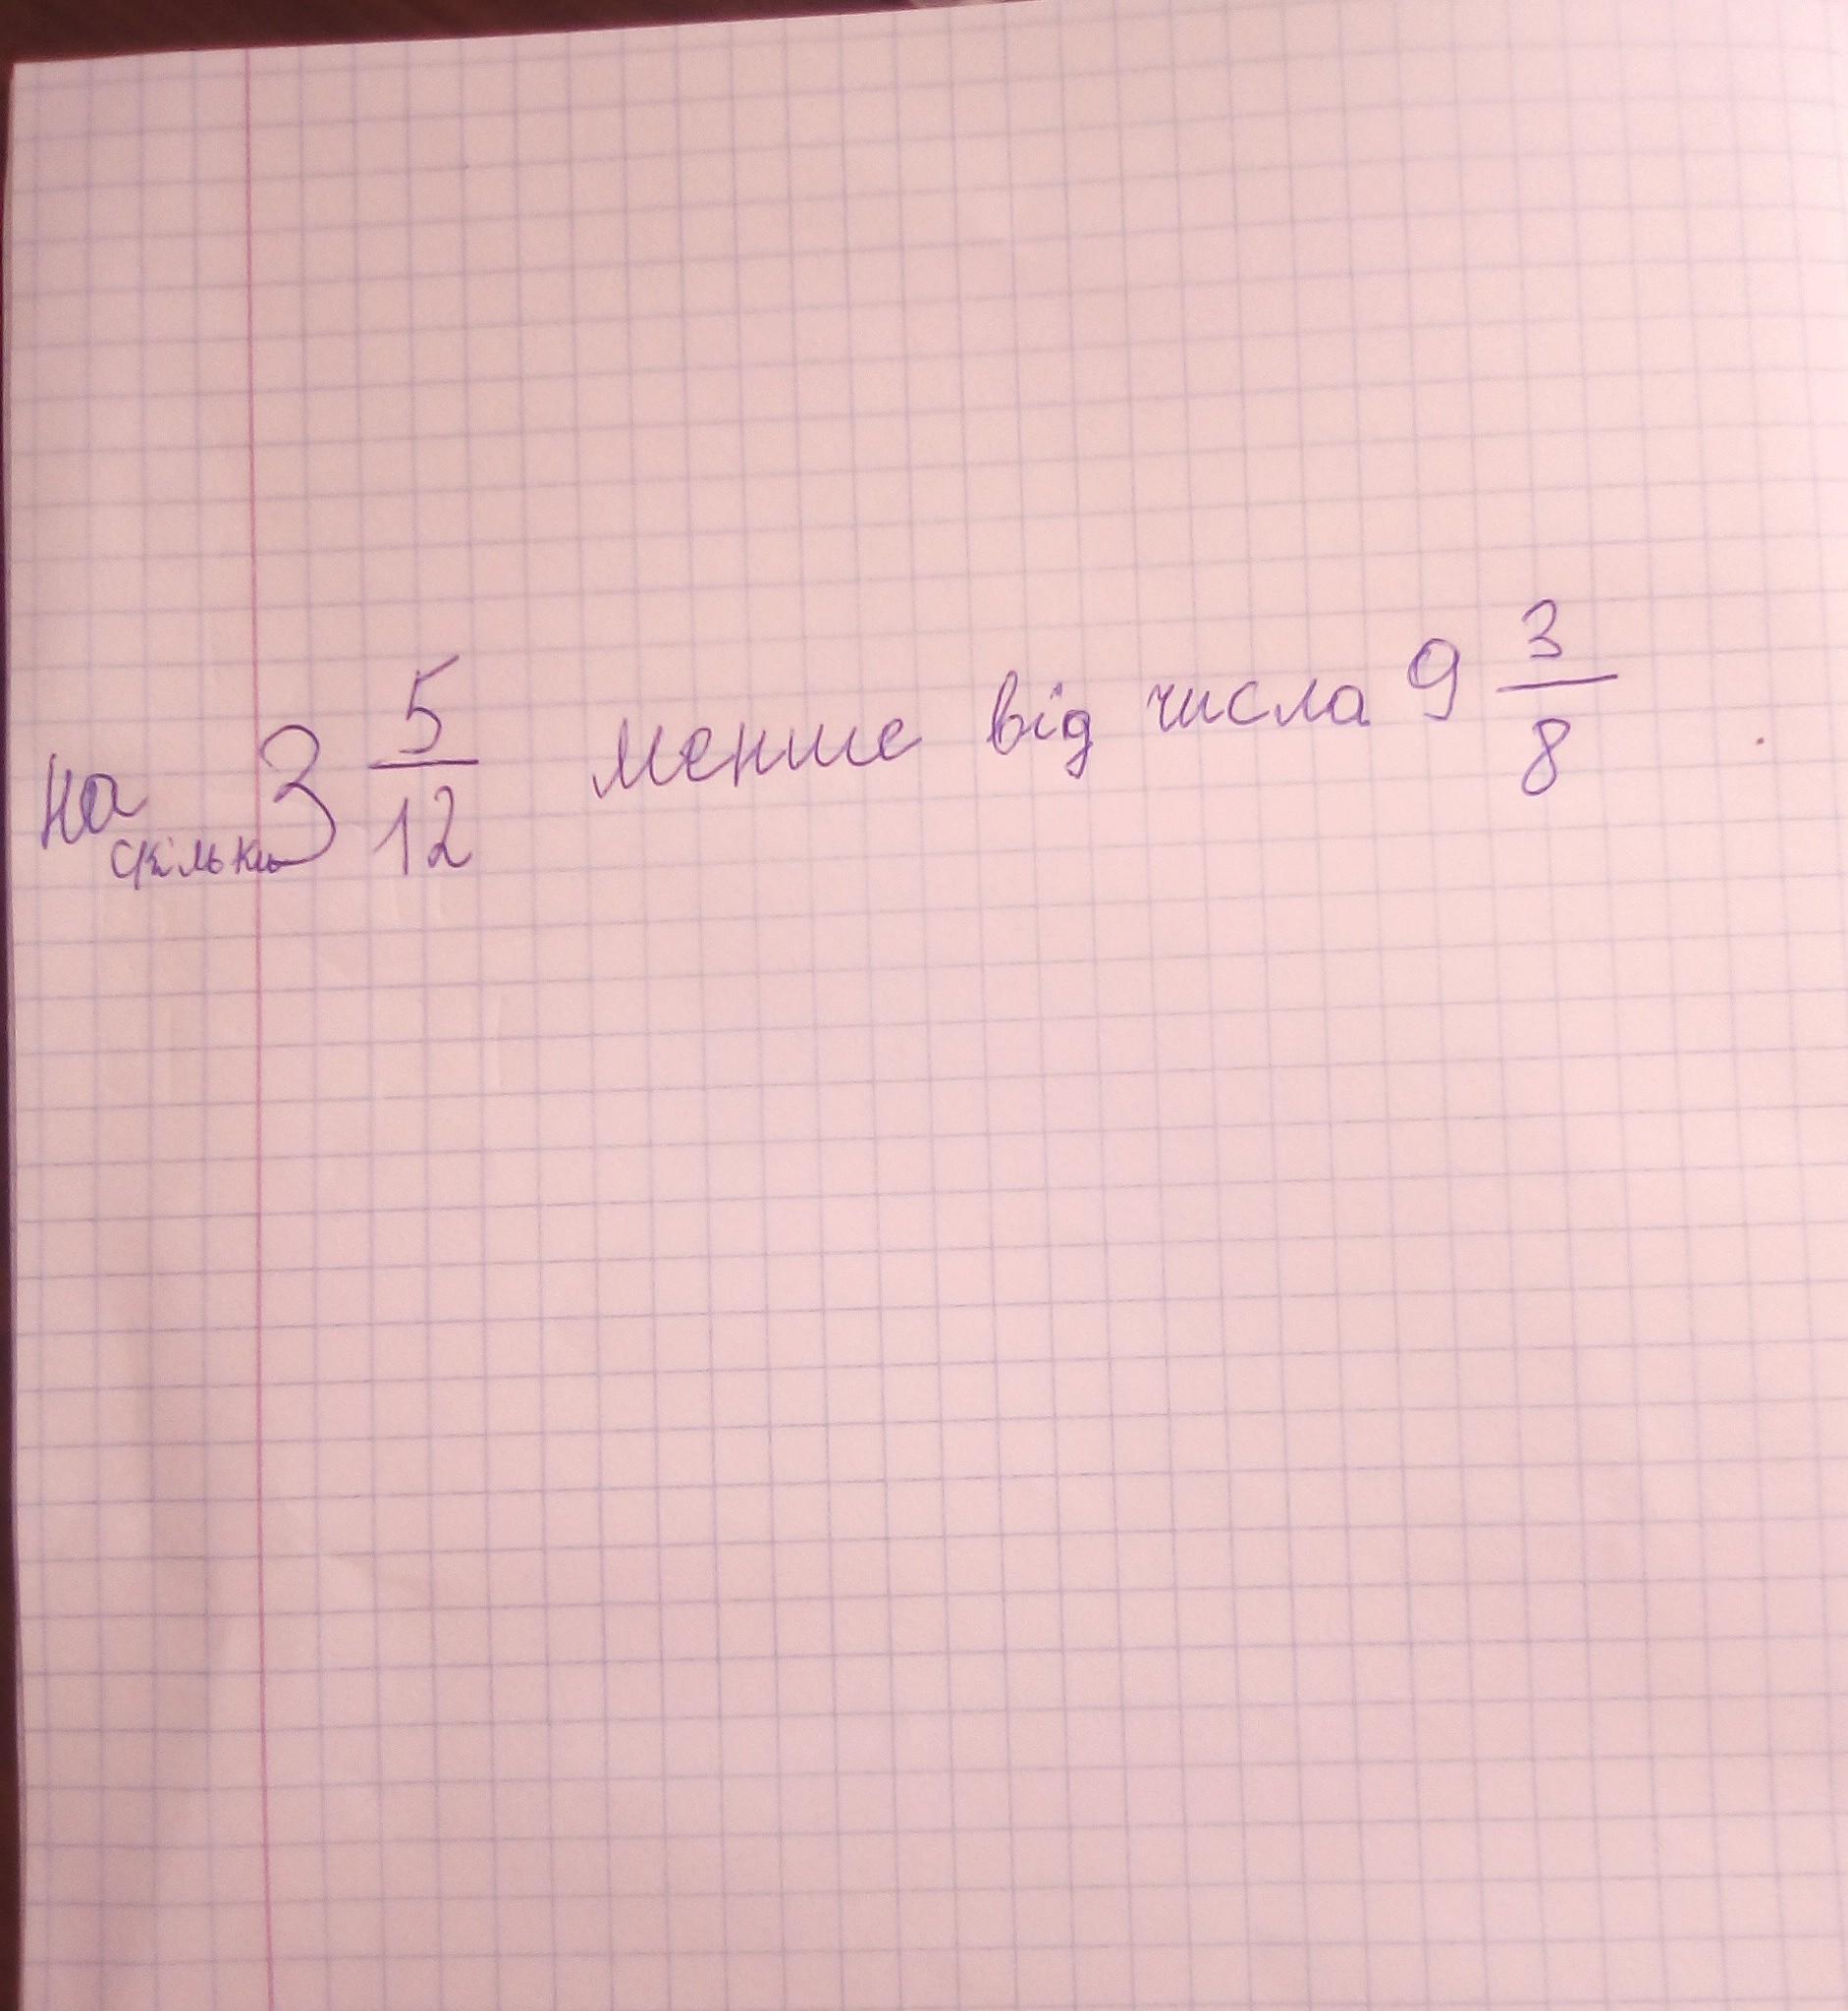 на скільки 3 5/12 менше від числа 9 3/8